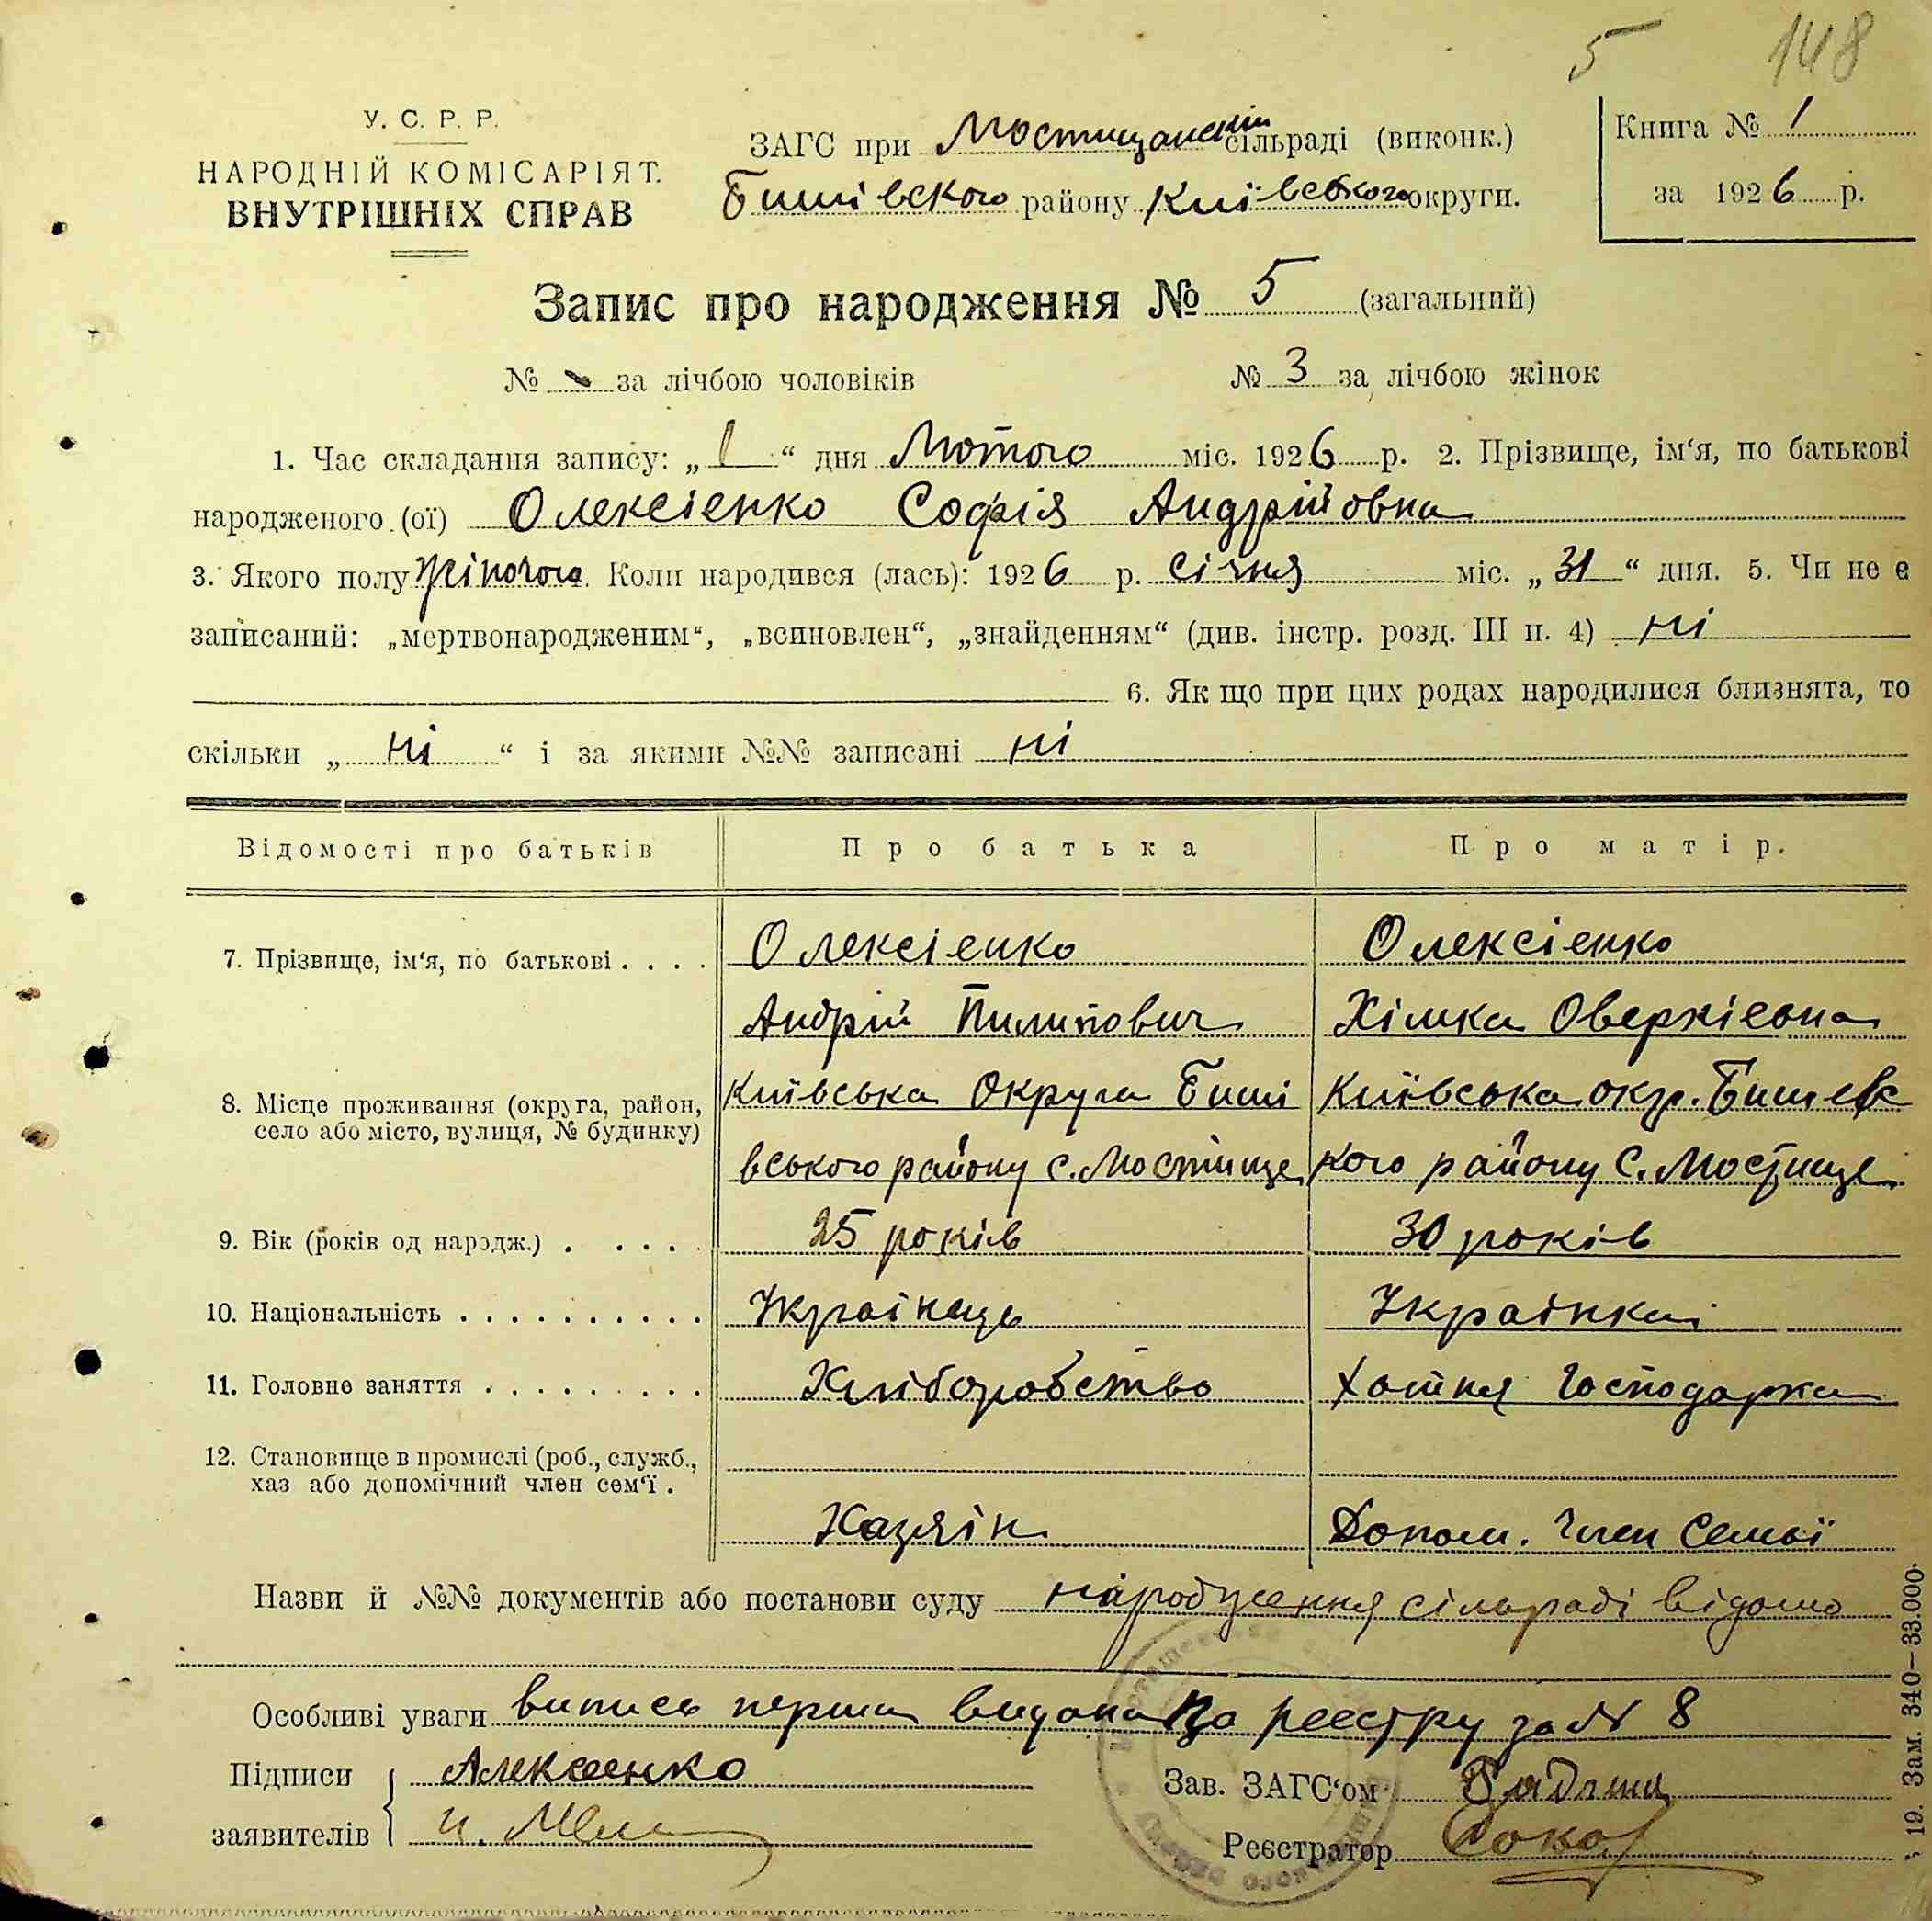 5 148
У. С. Р. Р.
НАРОДНІЙ КОМІСАРІЯТ.
ВНУТРІШНІХ СПРАВ
ЗАГС при Мостищанскій сільраді (виконк.)
Бишівского району Київського округи.
Книга № 1
за 1926 р.
Запис про народження № 5 (загальний)
№ за лічбою чоловіків № 3 за лічбою жінок
1. Час складання запису: „1“ дня Лютого міс. 1926 р. 2. Прізвище, ім‘я, по батькові
народженого (ої) Олексієнко Софія Андрійовна
3. Якого полу жіночого. Коли народився (лась): 1926 р. січня міс. „31“ дня. 5. Чи не є
записаний: „мертвонародженим“, „всиновлен“, „знайденням“ (див. інстр. розд. III п. 4) ні
6. Як що при цих родах народилися близнята, то
скільки „ні“ і за якими №№ записані ні
Відомості про батьків Про батька Про матір.
7. Прізвище, ім‘я, по батькові . . . . Олексієнко Олексієнко
Андрій Пилипович Хімка Оверкієвна
8. Місце проживання (округа, район, Київська Округа Биші Київська окр. Бишевс
село або місто, вулиця, № будинку)
вського району с. Мостище кого району С. Мостище
9. Вік (років од народж.) . . . . . 25 років 30 років
10. Національність . . . . . . . . . . Українець Українка
11. Головне заняття . . . . . . . . . Хліборобство Хатня Господарка
12. Становище в промислі (роб., служб.,
хаз або допомічний член сем‘ї .
Хазяїн Допом. Член Семьї
Назви й №№ документів або постанови суду народження сільраді відомо
Особливі уваги випись перша видана по реєстру за № 8
Підписи Алексеенко
заявителів и.
Зав. ЗАГС‘ом
Реєстратор
19. Зам. 340—33.000.